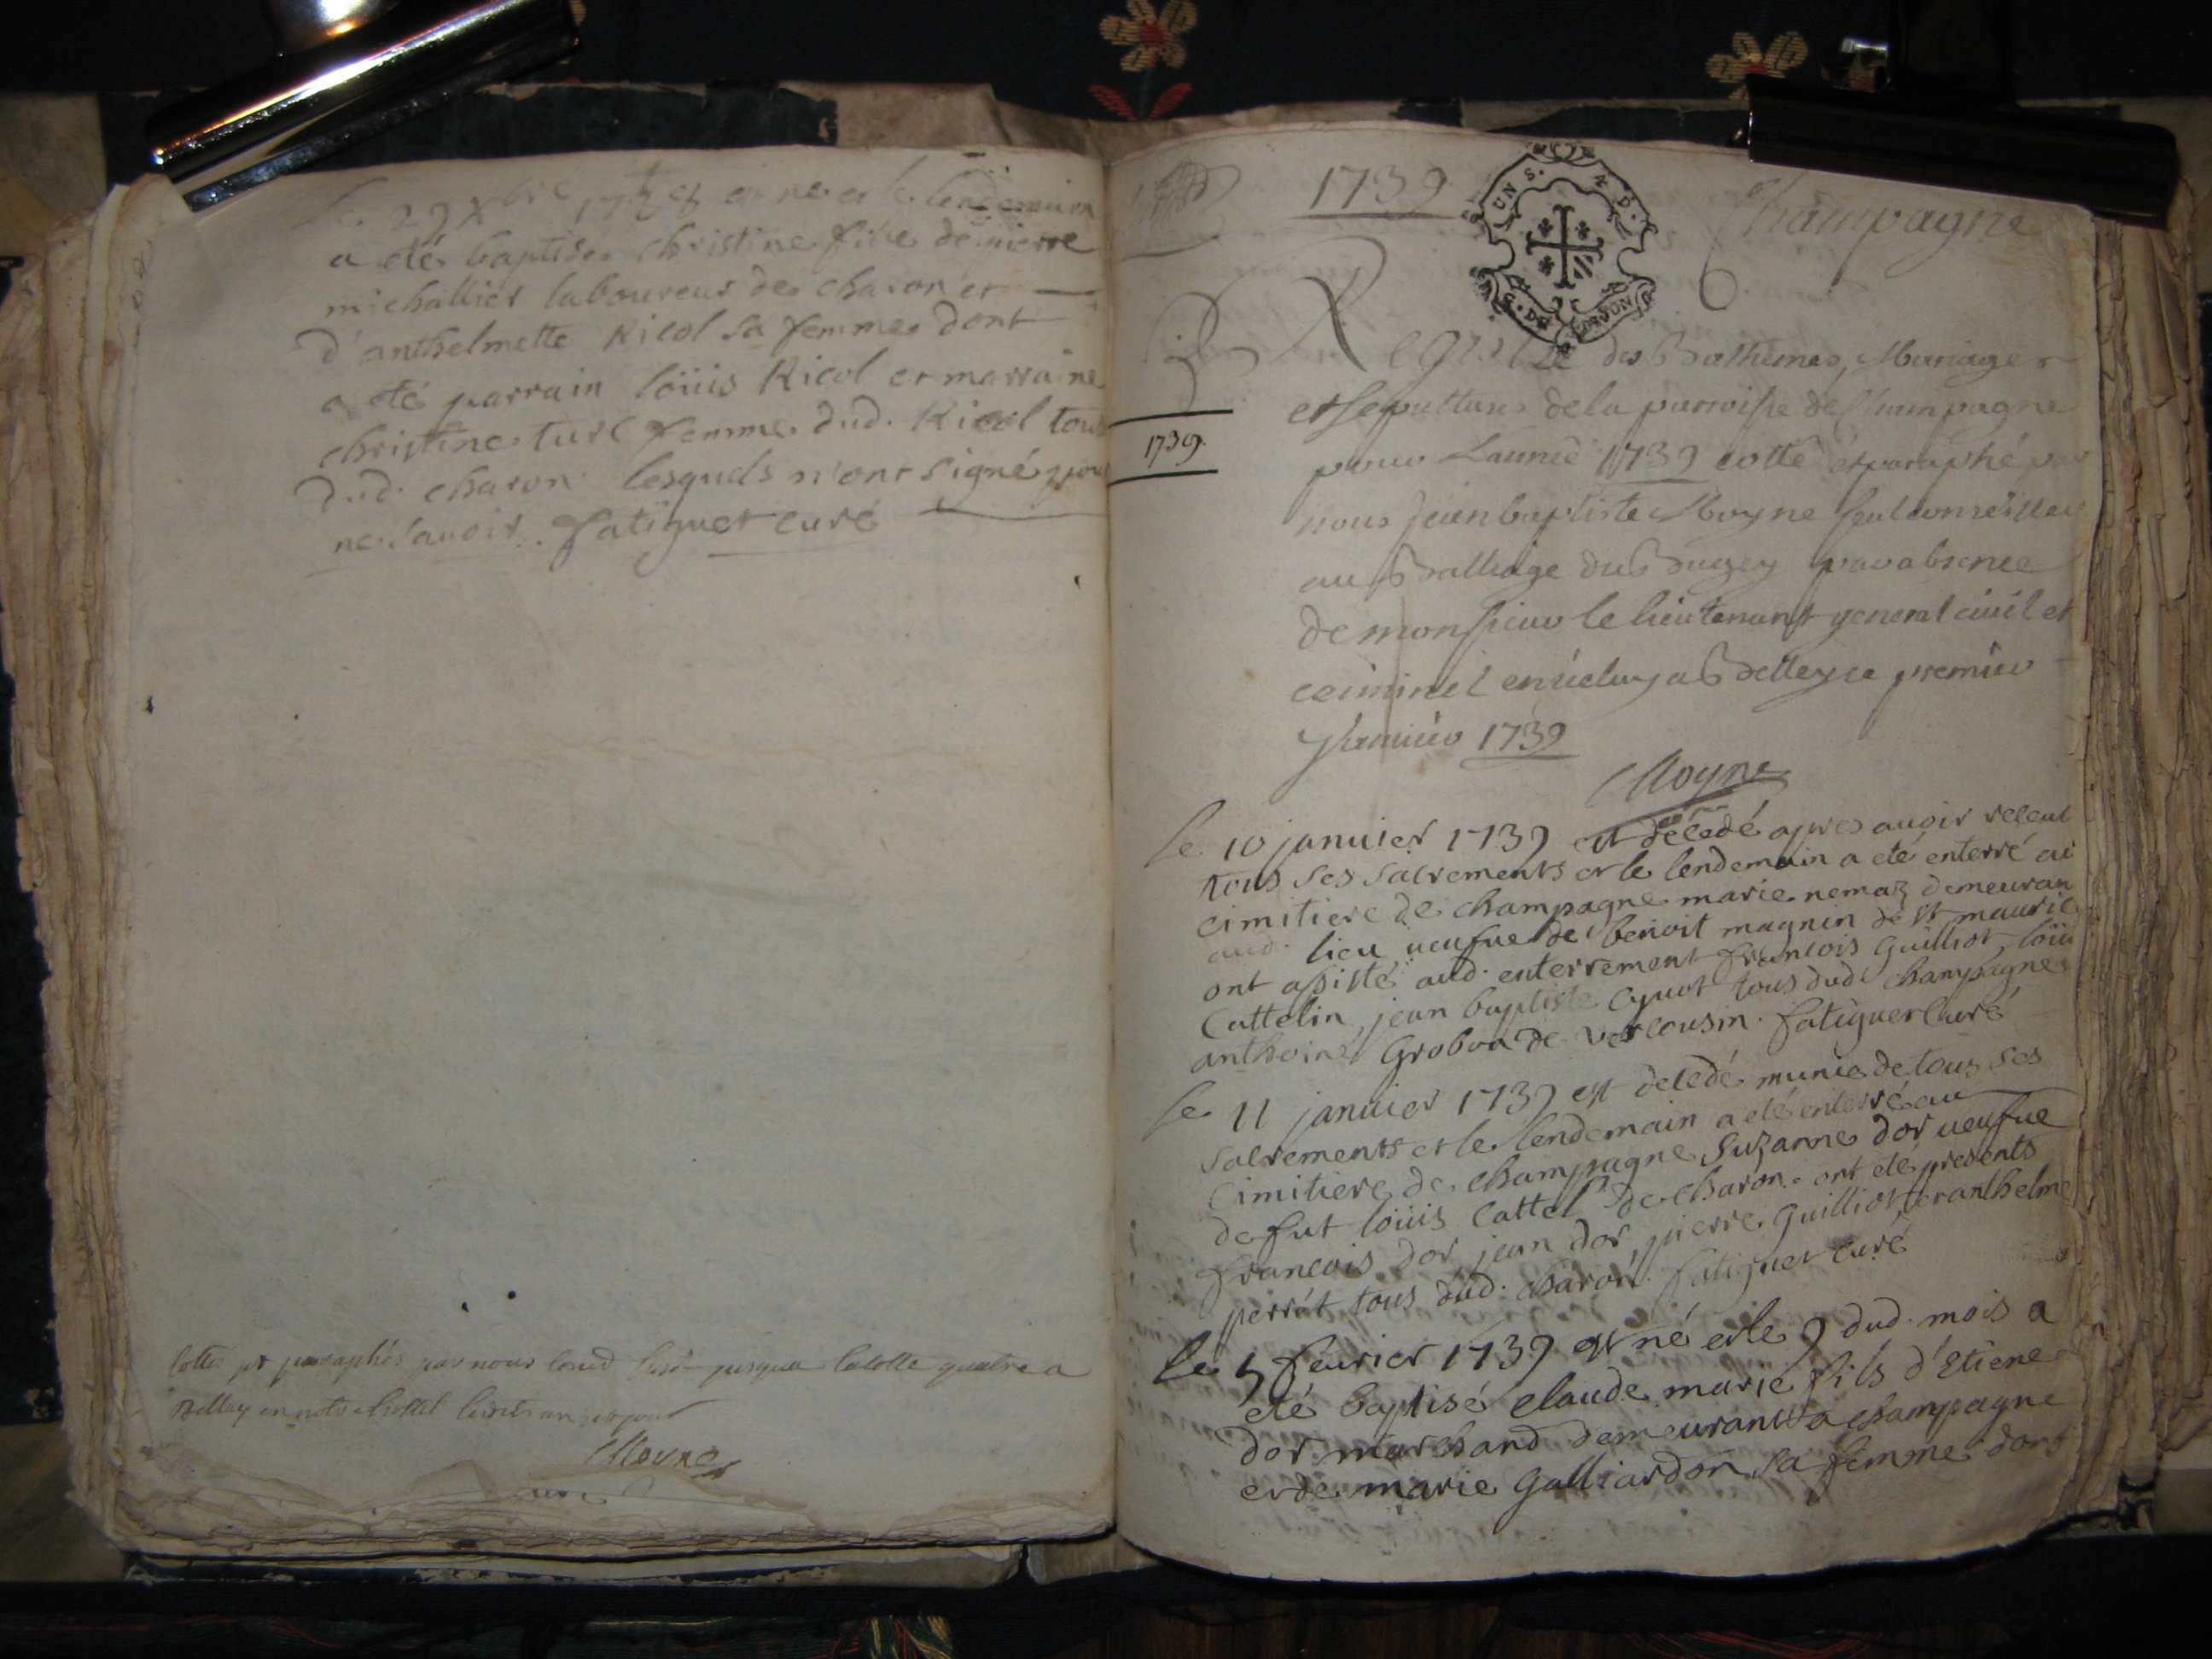 Le 29 Xbre est née et le lendemain
a eté baptisée christine fille de pierre
michallier laboureur de charon et
d'anthelmette Ricol sa femme dont
a eté parrain loüis Ricol et marraine
christine turc femme dud. Ricol tous
dud. charon lesquels n'ont signé pour
ne scavoir. fatiguet curé
Cotté et paraphés par nous jusqua la cotte quatre a
Belley en notre hostel
Moyne
1739
UN S. 4 D.
G. DE DIJON
Champagne
1739
Registre des Bathemes, Mariages
et sepultures de la parroisse de Champagne
pour Lannée 1739 cotté et paraphé par
nous jean baptiste Moyne seul conseiller
au Balliage du Bugey par absence
de monsieur le lieutenant general civil et
criminel a Belley ce premier
Janvier 1739
Moyne
Le 10 janvier 1739 est décedé apres avoir receut
tous ses sacrements et le lendemain a eté enterré au
cimitiere de champagne marie nemoz demeuran
aud. lieu veufue de benoit magnin de st mauric
ont assisté aud. enterrement francois Guilliot, loüi
Cattelin, jean baptiste Cynot tous dud champagne
anthoine Grobon de vercousin. fatiguet curé
Le 11 janvier 1739 est decedé munie de tous ses
sacrements et le lendemain a eté enterré au
Cimitiere de champagne Suzanne dor veufue
de fut loüis Cattel de charon. ont eté presents
francois dor, jean dor, pierre Guilliot, et anthelme
perrét tous dud. charon. fatiguet curé
Le 5 fevrier 1739 est né et le 9 dud. mois a
eté baptisé claude marie fils d'Etiene
dor marchand demeurant a champagne
et de marie Galliardon sa femme dont